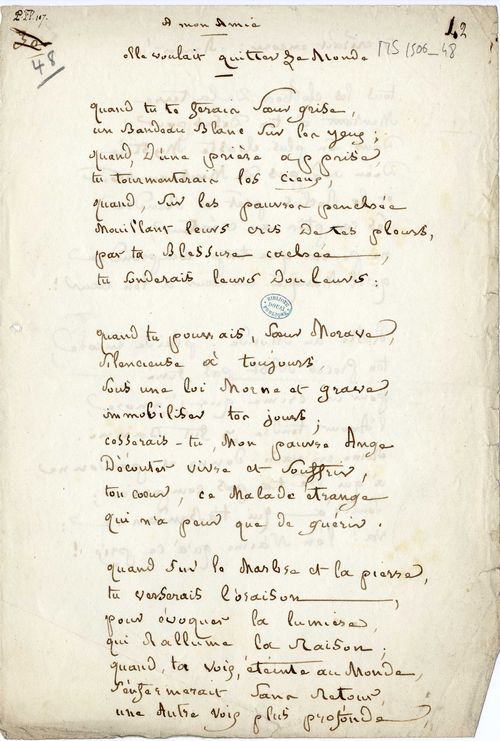 PPL. 107.
50
48
42
MS 1506_48
A mon Amie
elle voulait quitter Le Monde
quand tu te ferais Sœur grise,
un Bandeau Blanc Sur les yeux ;
quand, D'une prière apprise
tu tourmenterais les cieux,
quand, Sur les pauvres penchée
Mouillant leurs cris De tes pleurs,
par ta Blessure cachée,
tu Sonderais leurs Douleurs :
quand tu pourrais, Sœur Morave,
Silencieuse à toujours
Sous une loi Morne et grave
immobiliser tes jours ;
cesserais-tu, Mon pauvre Ange
D'écouter vivre et Souffrir,
ton cœur, ce Malade étrange
qui n'a peur que de guérir.
quand Sur le Marbre et la pierre,
tu verserais l'oraison,
pour évoquer la lumière,
qui Rallume la Raison ;
quand, ta voix, éteinte au Monde,
S'enfermerait Sans retour,
une Autre voix plus profonde,